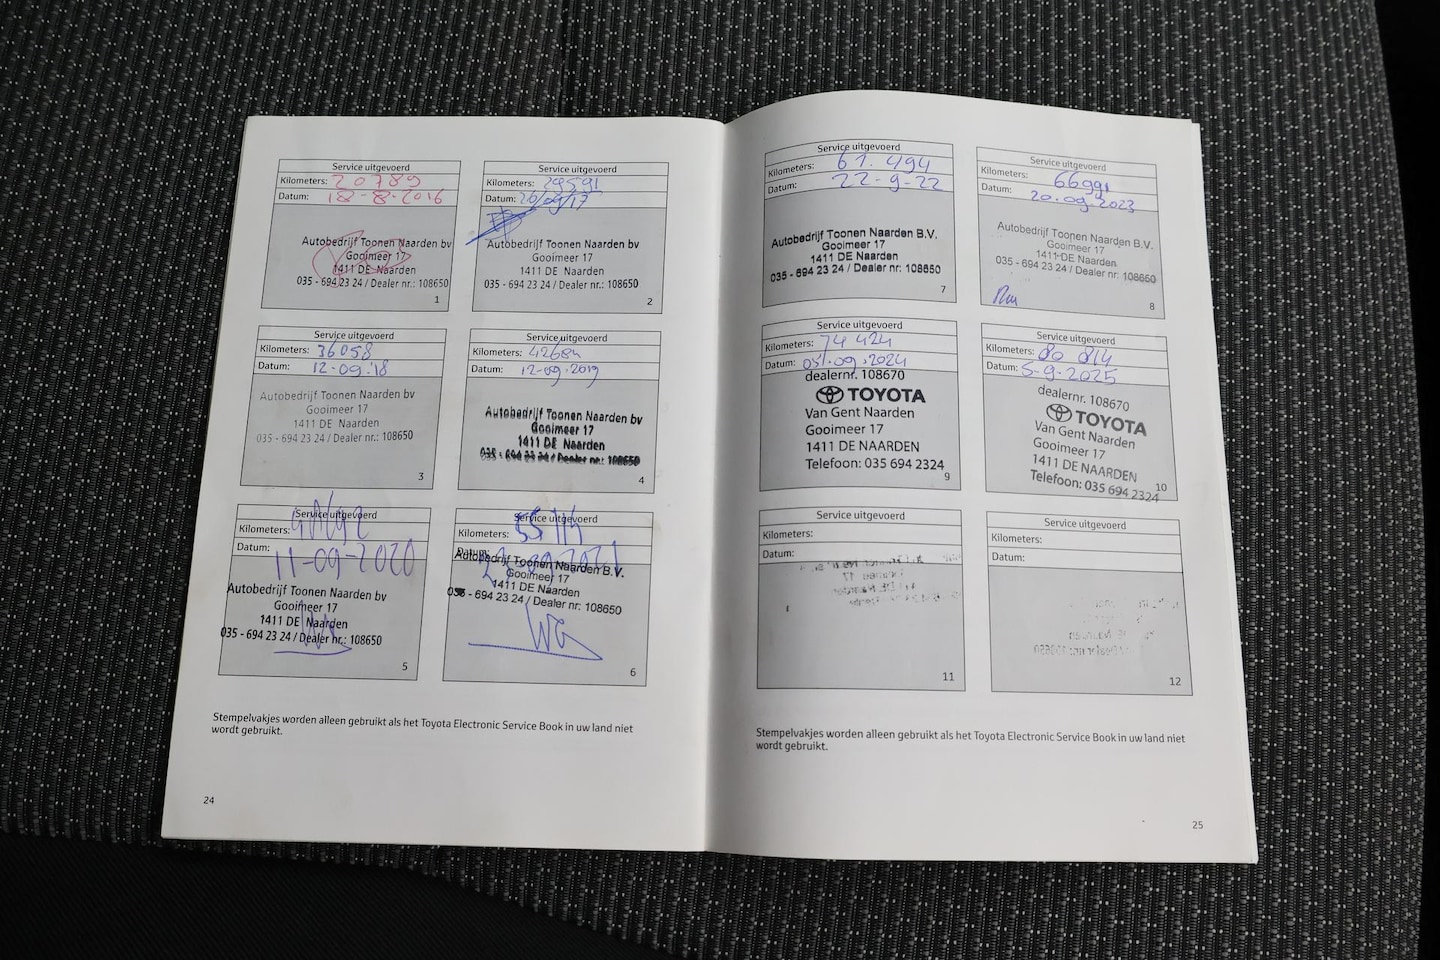 Service uitgevoerd
Kilometers: 20789
Datum: 18-8-2016
Autobedrijf Toonen Naarden bv
Gooimeer 17
1411 DE Naarden
035 - 694 23 24 / Dealer nr.: 108650
1
Service uitgevoerd
Kilometers: 29591
Datum: 26/09/17
Autobedrijf Toonen Naarden bv
Gooimeer 17
1411 DE Naarden
035 - 694 23 24 / Dealer nr.: 108650
2
Service uitgevoerd
Kilometers: 36058
Datum: 12-09-'18
Autobedrijf Toonen Naarden bv
Gooimeer 17
1411 DE Naarden
035 - 694 23 24 / Dealer nr.: 108650
3
Service uitgevoerd
Kilometers:
Datum: 12-09-2019
Autobedrijf Toonen Naarden bv
Gooimeer 17
1411 DE Naarden
035 - 694 23 24 / Dealer nr.: 108650
4
Service uitgevoerd
Kilometers:
Datum: 11-09-2020
Autobedrijf Toonen Naarden bv
Gooimeer 17
1411 DE Naarden
035 - 694 23 24 / Dealer nr.: 108650
5
Service uitgevoerd
Kilometers:
Datum:
Autobedrijf Toonen Naarden B.V.
Gooimeer 17
1411 DE Naarden
035 - 694 23 24 / Dealer nr: 108650
6
Stempelvakjes worden alleen gebruikt als het Toyota Electronic Service Book in uw land niet
wordt gebruikt.
24
Service uitgevoerd
Kilometers: 61.494
Datum: 22-9-22
Autobedrijf Toonen Naarden B.V.
Gooimeer 17
1411 DE Naarden
035 - 694 23 24 / Dealer nr: 108650
7
Service uitgevoerd
Kilometers: 66991
Datum: 20.09.2023
Autobedrijf Toonen Naarden B.V.
Gooimeer 17
1411 DE Naarden
035 - 694 23 24 / Dealer nr: 108650
8
Service uitgevoerd
Kilometers: 74 424
Datum: 05.09.2024
dealernr. 108670
TOYOTA
Van Gent Naarden
Gooimeer 17
1411 DE NAARDEN
Telefoon: 035 694 2324
9
Service uitgevoerd
Kilometers: 80 814
Datum: 5-9-2025
dealernr. 108670
TOYOTA
Van Gent Naarden
Gooimeer 17
1411 DE NAARDEN
Telefoon: 035 694 2324
10
Service uitgevoerd
Kilometers:
Datum:
11
Service uitgevoerd
Kilometers:
Datum:
12
Stempelvakjes worden alleen gebruikt als het Toyota Electronic Service Book in uw land niet
wordt gebruikt.
25